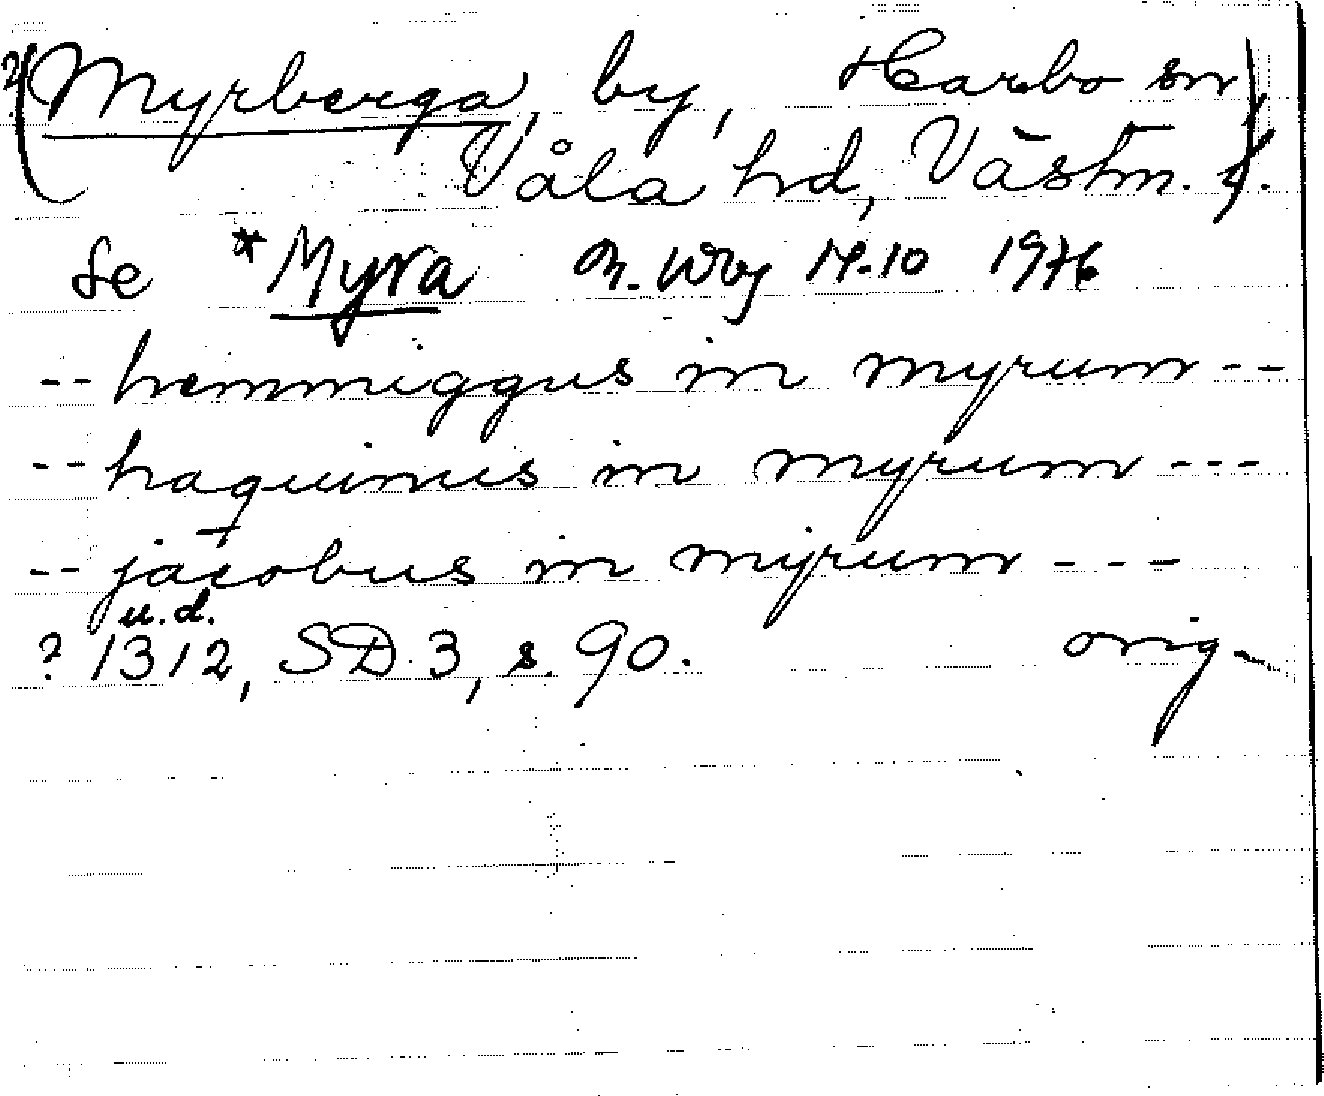 ?(Myrberga, by, Harbo sn
Våla hd, Västm. l.)
Se *Myra M. Wbg 14.10 1976
-- hemmiggus in myrum --
-- haquinus in myrum ---
-- jacobus in mÿrum ---
u.d.
? 1312, SD 3, s. 90. orig.